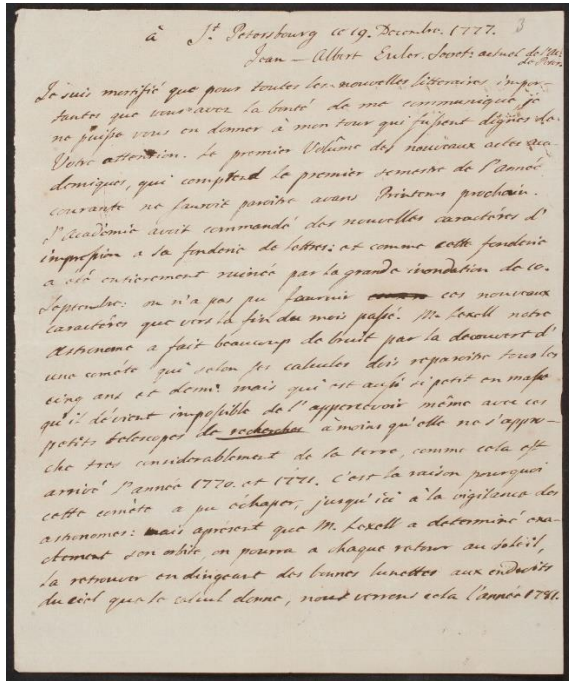 3
à St Petersbourg ce 19. Decembre. 1777.
Jean - Albert Euler. Secret: actuel de l'Ac:
de Petersb.
Je suis mortifié que pour toutes les nouvelles litteraires impor-
tantes que vous avez la bonté de me communiquer je
ne puisse vous en donner à mon tour qui fussent dignes de
Votre attention. Le premier Volume des nouveaux actes aca-
demiques, qui comptend le premier semestre de l'année
courante ne sauroit paroitre avans Printems prochain.
l'Académie avoit commandé des nouvelles caractères d'
impression a sa fonderie de lettres: et comme cette fonderie
a été entierement ruinée par la grande inondation de 10.
Septembre: on n'a pas pu fournir ces nouveaux
caractères que vers la fin du mois passé. M. Lexell notre
Astronome a fait beaucoup de bruit par la decouvert d'
une comète qui selon ses calcules dois reparoitre tous les
cinq ans et demi. mais qui est aussi si petit en masse
qu'il dévient impossible de l'appercevoir même avec ces
petits telescopes de rechercher a moins qu'elle ne s'appro-
che tres considerablement de la terre, comme cela est
arrivé l'année 1770. et 1771. c'est la raison pourquoi
cette comète a pu échaper, jusqu'ici à la vigilance des
astronomes: mais aprésent que M. Lexell a determiné exa-
ctement son orbite, on pourra a chaque retour au soleil,
la retrouver en dirigeant des bonnes lunettes aux endroits
du ciel que le calcul donne, nous verrons cela l'année 1781.